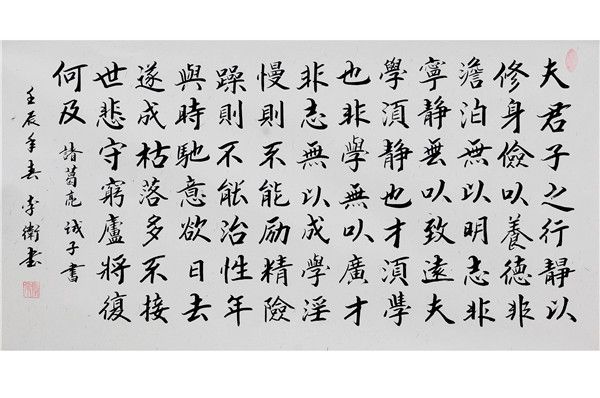 夫君子之行靜以
修身儉以養德非
澹泊無以明志非
寧靜無以致遠夫
學須靜也才須學
也非學無以廣才
非志無以成學淫
慢則不能励精險
躁則不能治性年
與時馳意欲日去
遂成枯落多不接
世悲守窮廬將復
何及 諸葛亮诫子書
壬辰年春 李衛書